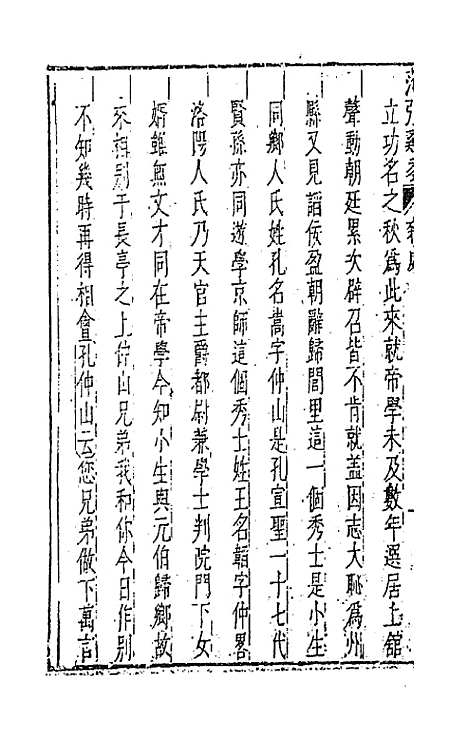 立功名之秋爲此來就帝學未及數年選居上舘
聲動朝廷累次辟召皆不肯就盖因志大恥爲州
縣又見謟佞盈朝辭歸閭里這一個秀士是小生
同鄉人氏姓孔名嵩字仲山是孔宣聖一十七代
賢孫亦同遊學京師這個秀士姓王名韜字仲畧
洛陽人氏乃天官主爵都尉兼學士判院門下女
婿雖無文才同在帝學今知小生與元伯歸鄉故
來相别于長亭之上仲山兄弟我和你今日作别
不知幾時再得相會孔仲山云您兄弟做下萬言